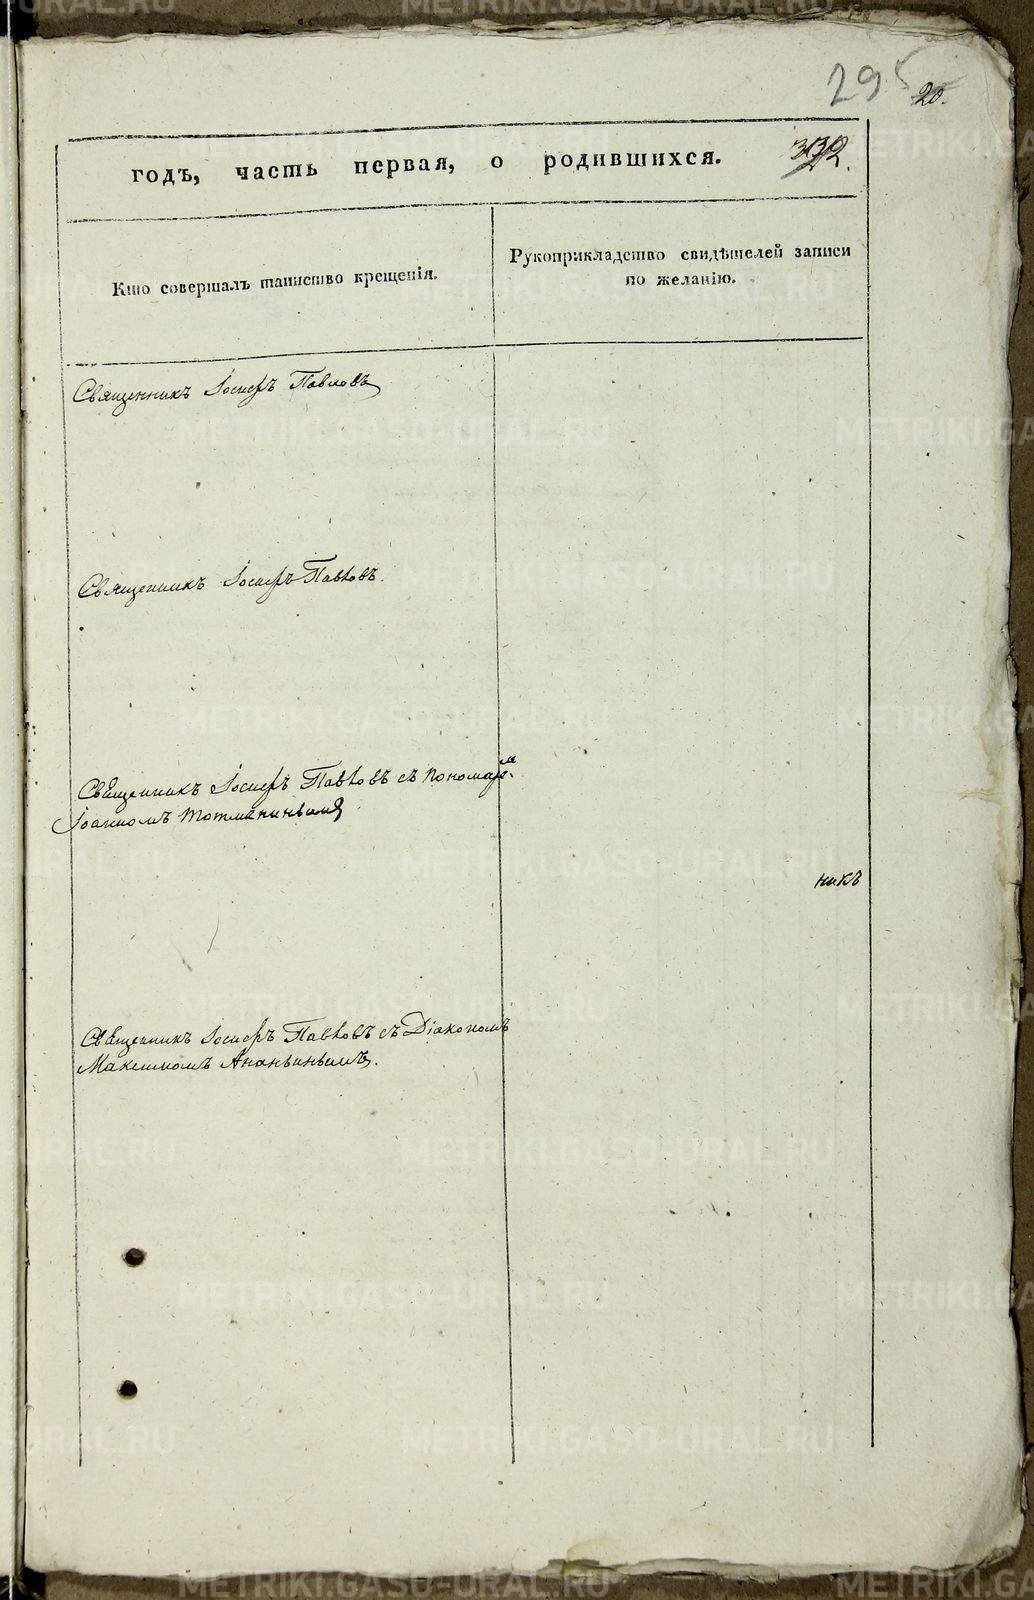 295
20.
годъ, часть первая, о родившихся.
Кто совершалъ таинство крещенія.
Рукоприкладство свидѣтелей записи
по желанію.
Священникъ Іосифъ Павловъ
Священникъ Іосифъ Павловъ.
Священникъ Іосифъ Павловъ съ пономаре.мъ
Іоанномъ Тотмянинымъ
никъ
Священникъ Іосифъ Павловъ съ Діакономъ
Максимомъ Ананьинымъ.
METRIKI.GASO-URAL.RU